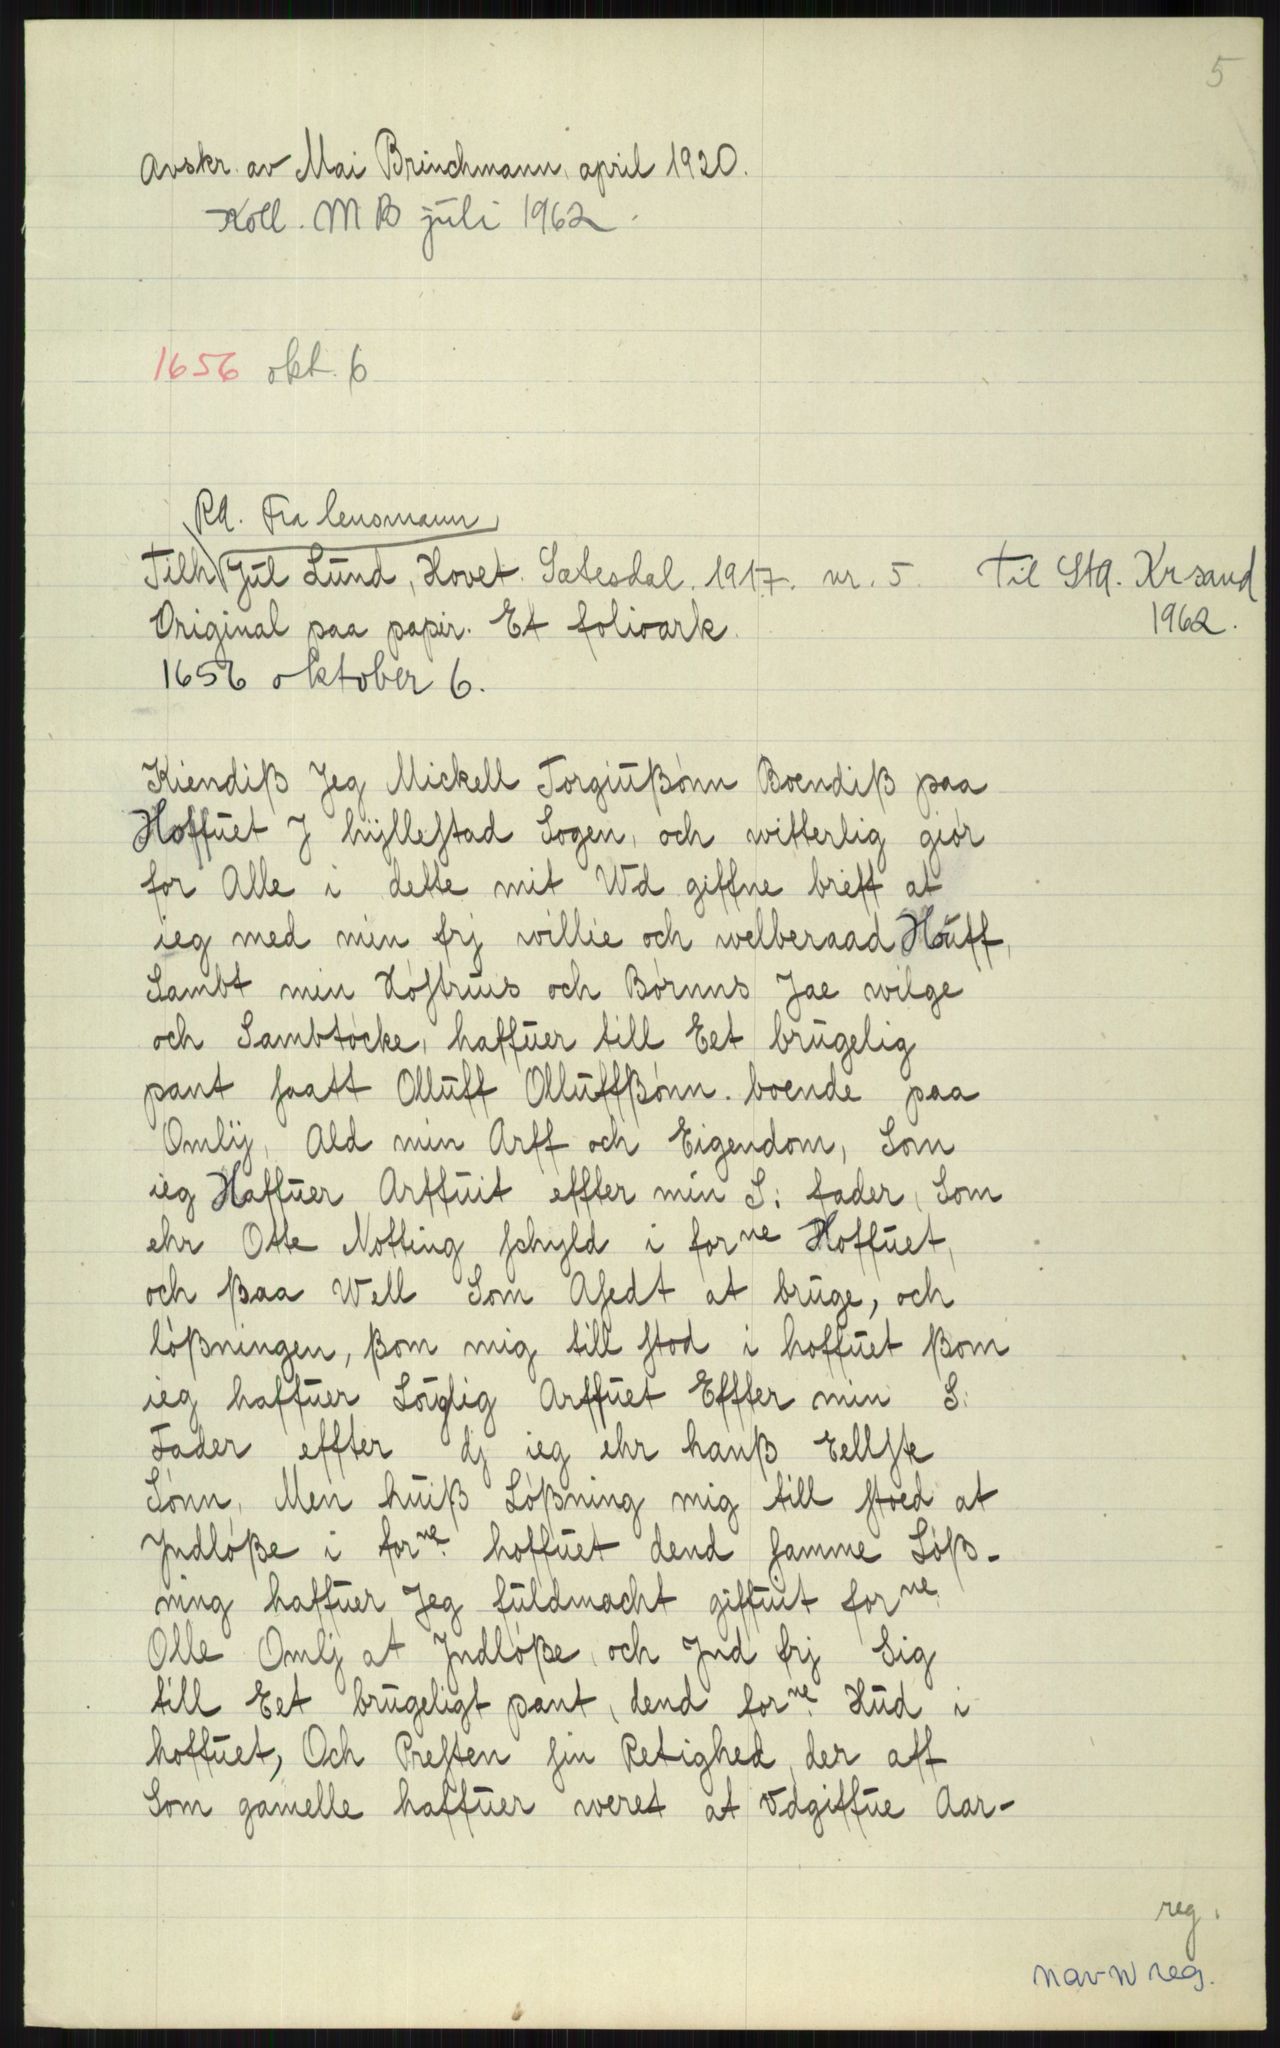 5
Avskr. av Mai Brinchmann, april 1920.
Koll. MB juli 1962.
1656 okt. 6
RA. Fra lensmann
Tilh. Jul Lund, Hovet. Sætesdal. 1917. nr. 5. Til Sta. Krsand
Original paa papir. Et folioark. 1962.
1656 oktober 6.
Kiendiß Jeg Mickell Torgiußónn Boendiß paa
Hoffuet J hyllestad Sogen, och witterlig giór
for Alle i dette mit Wd giffne breff at
ieg med min frj willie och welberaad Huff,
Sambt min Hóstrus och Bórnns Jae wilge
och Sambtócke, haffuer till Eet brugelig
pant saatt Olluff Olluffßónn. boende paa
Omlij, Ald min Arff och Eigendom, Som
ieg Haffuer Arffuit effter min S: fader, Som
ehr Otte Notting schyld i forne Hoffuet,
och ßaa Well Som Asedt at bruge, och
lóßningen, ßom mig till stod i hoffuet ßom
ieg haffuer Lóglig Arffuet Effter min S:
Fader effter dj ieg ehr hanß Eellste
Sónn, Men huiß Lóßning mig till stoed at
Jndlóße i forne. hoffuet dend samme Lóß-
ning haffuer Jeg fuldmacht giffuit forne.
Olle Omlj at Jndlóße, och Jnd frj Sig
till Eet brugeligt pant, dend forne. Hud i
hoffuet, Och Presten sin Retighed, der aff
Som gamelle haffuer weret at vdgiffue Aar-
reg.
navn reg.